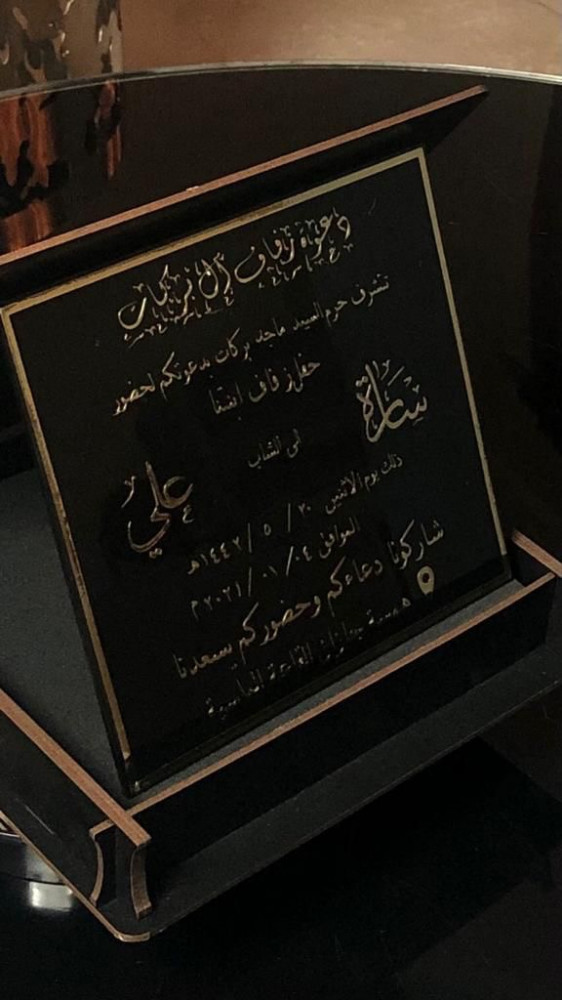 دعوة زفاف آل بركات
تتشرف حرم السيد ماجد بركات بدعوتكم لحضور
حفل زفاف ابنتنا
سارة
الى الشاب
علي
ذلك يوم الاثنين ٢٠ / ٥ / ١٤٤٢هـ
الموافق ٠٤ / ٠١ / ٢٠٢١م
شاركونا دعاءكم وحضوركم يسعدنا
القاعة الماسية